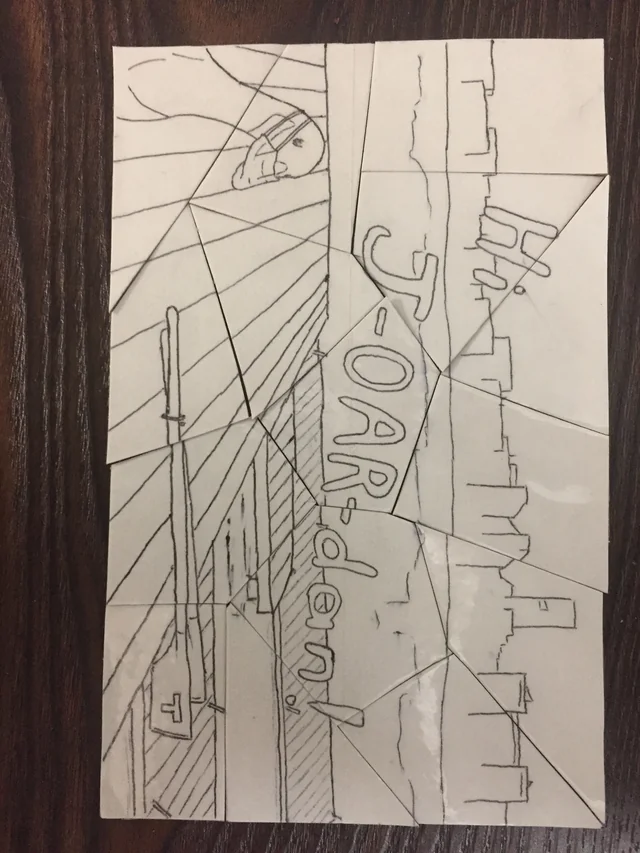 Hi
J-OAR-den!
T